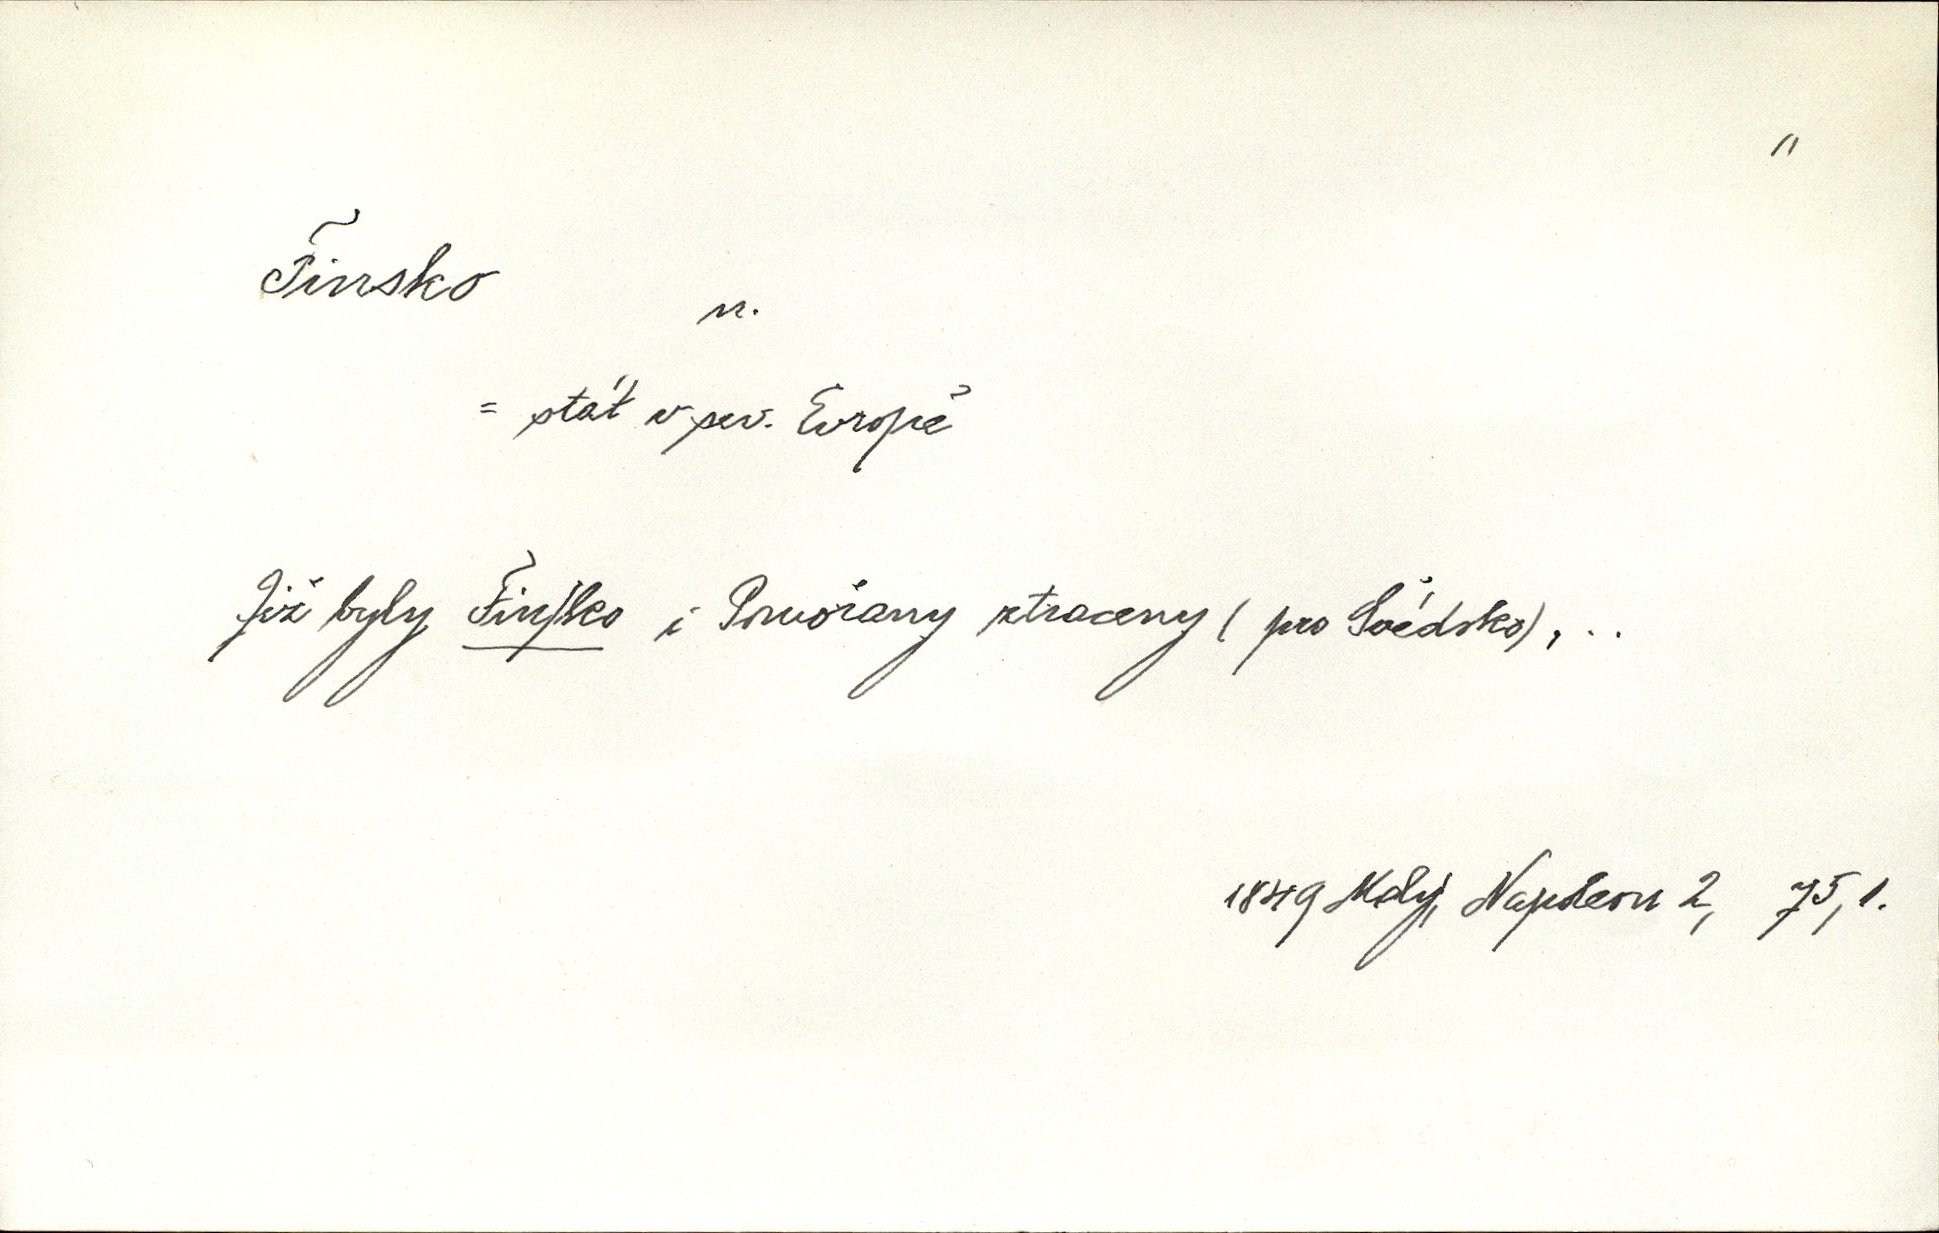 "
Finsko
n.
= stát v sev. Evropě
Již byly Finſko i Pomořany ztraceny ( pro Švédsko), ..
1849 Malý, Napoleon 2, 75, 1.